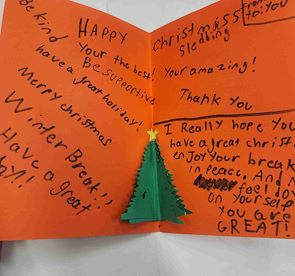 Be kind
HAPPY
Your the best!
Be supportive
have a great holiday!
Merry christmas
Winter Break!!
Have a great
day!!
Christmass
Sledding
From:
to: You
Your amazing!
Thank You
I Really hope You
have a great christ
enjoy Your break
in peace. And
feel do
on Yourself
You are
GREAT!